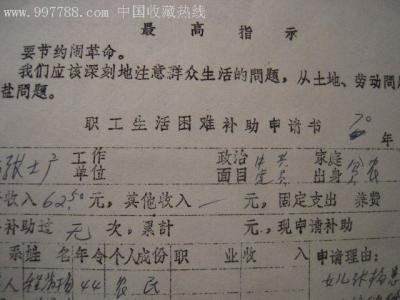 www.997788.com 中国收藏热线
最高指示
要节约闹革命。
我们应该深刻地注意群众生活的问题，从土地、劳动问
盐问题。
职工生活困难补助申请书 70年
张士广 工作单位 政治面目 中共党员 家庭出身 贫农
收入6250元，其他收入一元，固定支出 养费
补助过 元 次，累计 元，现申请补助
系 姓名 年令 个人成份 职业 收入 申请理由：
人 44 农民 女儿